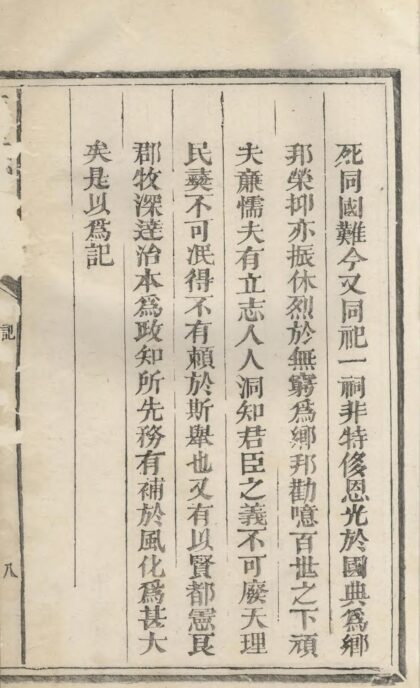 死同國難今又同祀一祠非特侈恩光於國典爲鄉
邦榮抑亦振休烈於無窮爲鄉邦勸噫百世之下頑
夫亷懦夫有立志人人洞知君臣之義不可廢天理
民彛不可泯得不有賴於斯舉也又有以賢都憲良
郡牧深達治本爲政知所先務有補於風化爲甚大
矣是以爲記
記
八